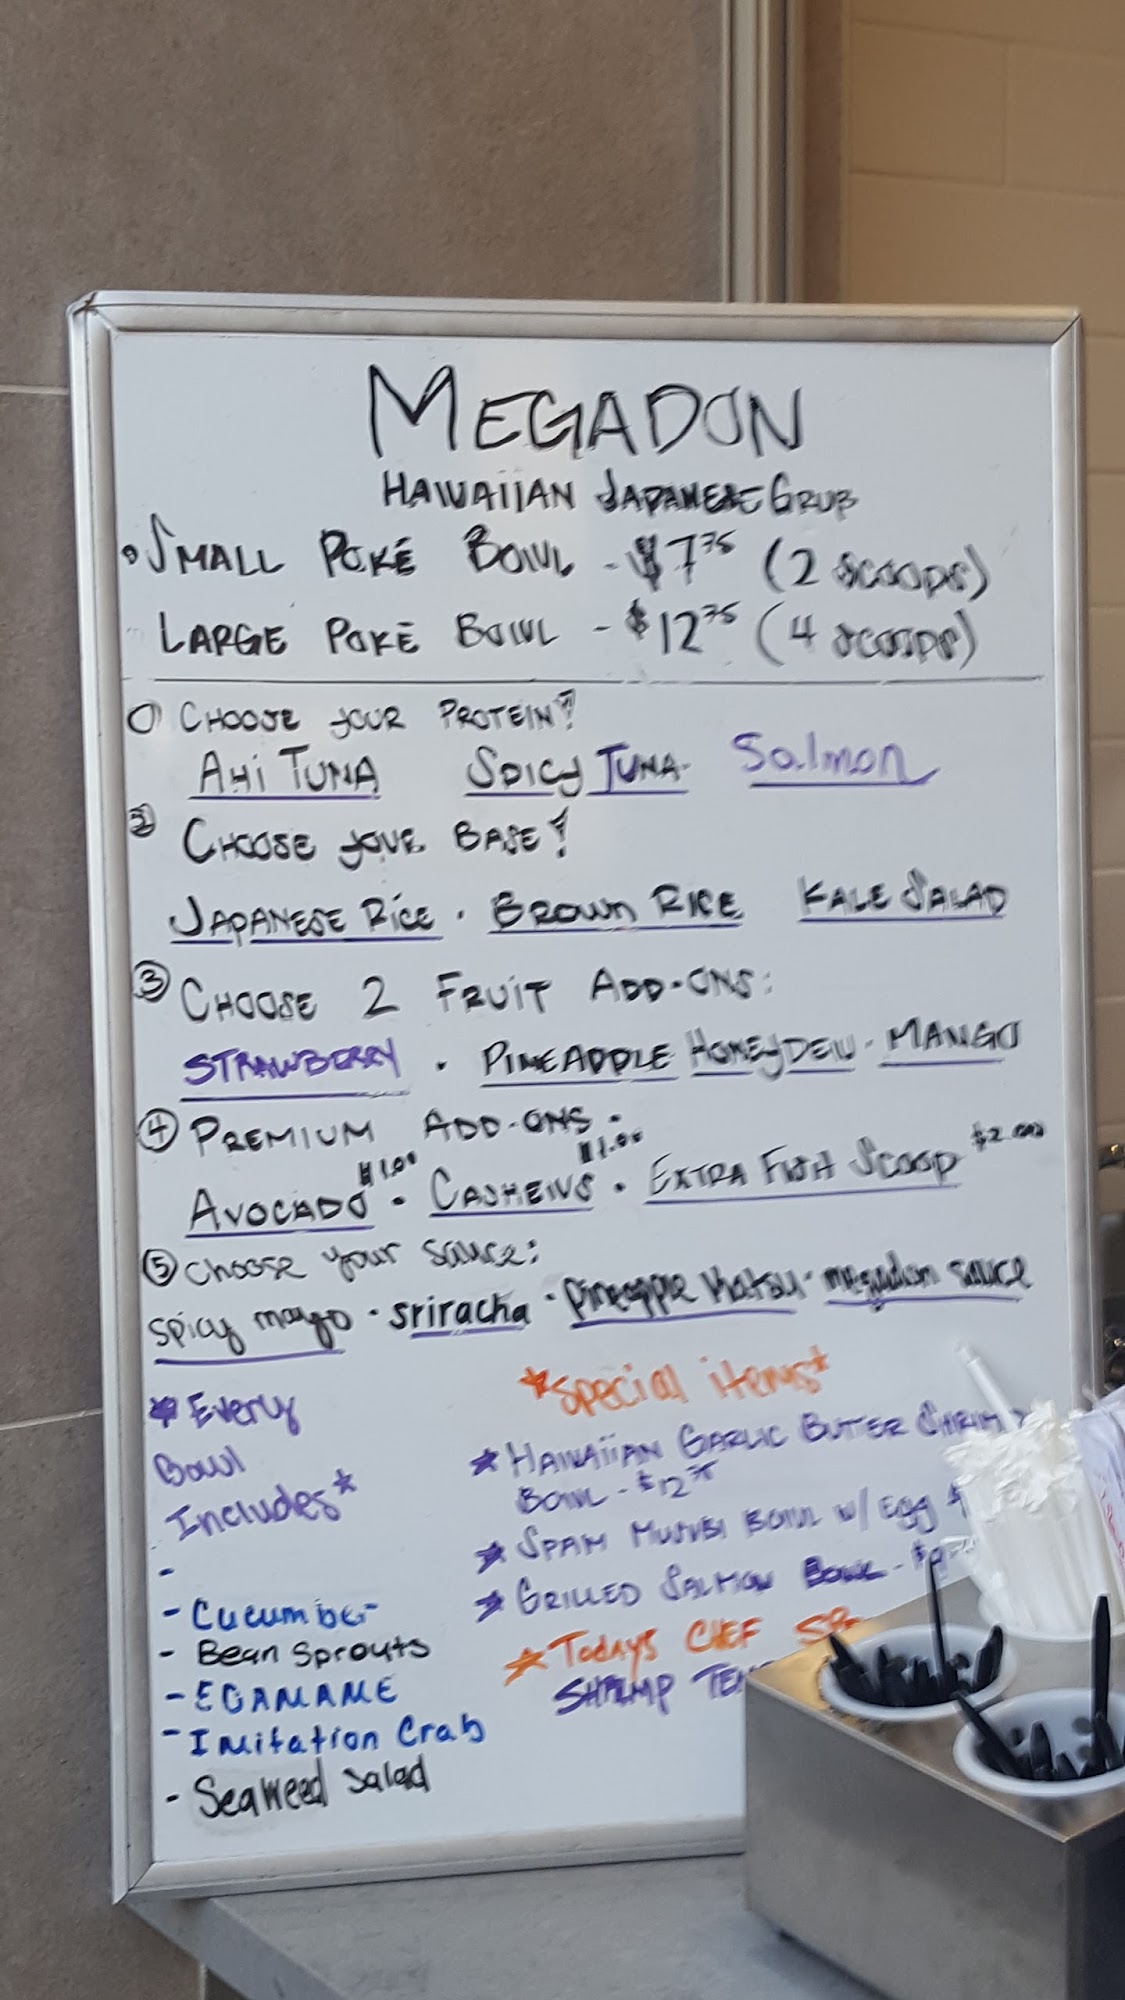 MEGADON
HAWAIIAN JAPANESE GRUB
• SMALL POKÉ BOWL - $7.75 (2 SCOOPS)
LARGE POKÉ BOWL - $12.75 (4 SCOOPS)
① CHOOSE YOUR PROTEIN!
AHI TUNA SPICY TUNA Salmon
② CHOOSE YOUR BASE!
JAPANESE RICE • BROWN RICE KALE SALAD
③ CHOOSE 2 FRUIT ADD-ONS:
STRAWBERRY • PINEAPPLE HONEYDEW • MANGO
④ PREMIUM ADD-ONS:
AVOCADO $1.00 • CASHEWS $1.00 • EXTRA FISH SCOOP $2.00
⑤ choose your sauce:
spicy mayo • sriracha • pineapple Katsu • megadon sauce
*Every
Bowl
Includes*
-
- Cucumber
- Bean Sprouts
- EDAMAME
- Imitation Crab
- Seaweed Salad
*Special items*
* HAWAIIAN GARLIC BUTTER SHRIM
BOWL - $12.75
* SPAM MUSUBI BOWL w/ Egg
* GRILLED SALMON BOWL - $9
* Todays CHEF SP
SHRIMP TEM